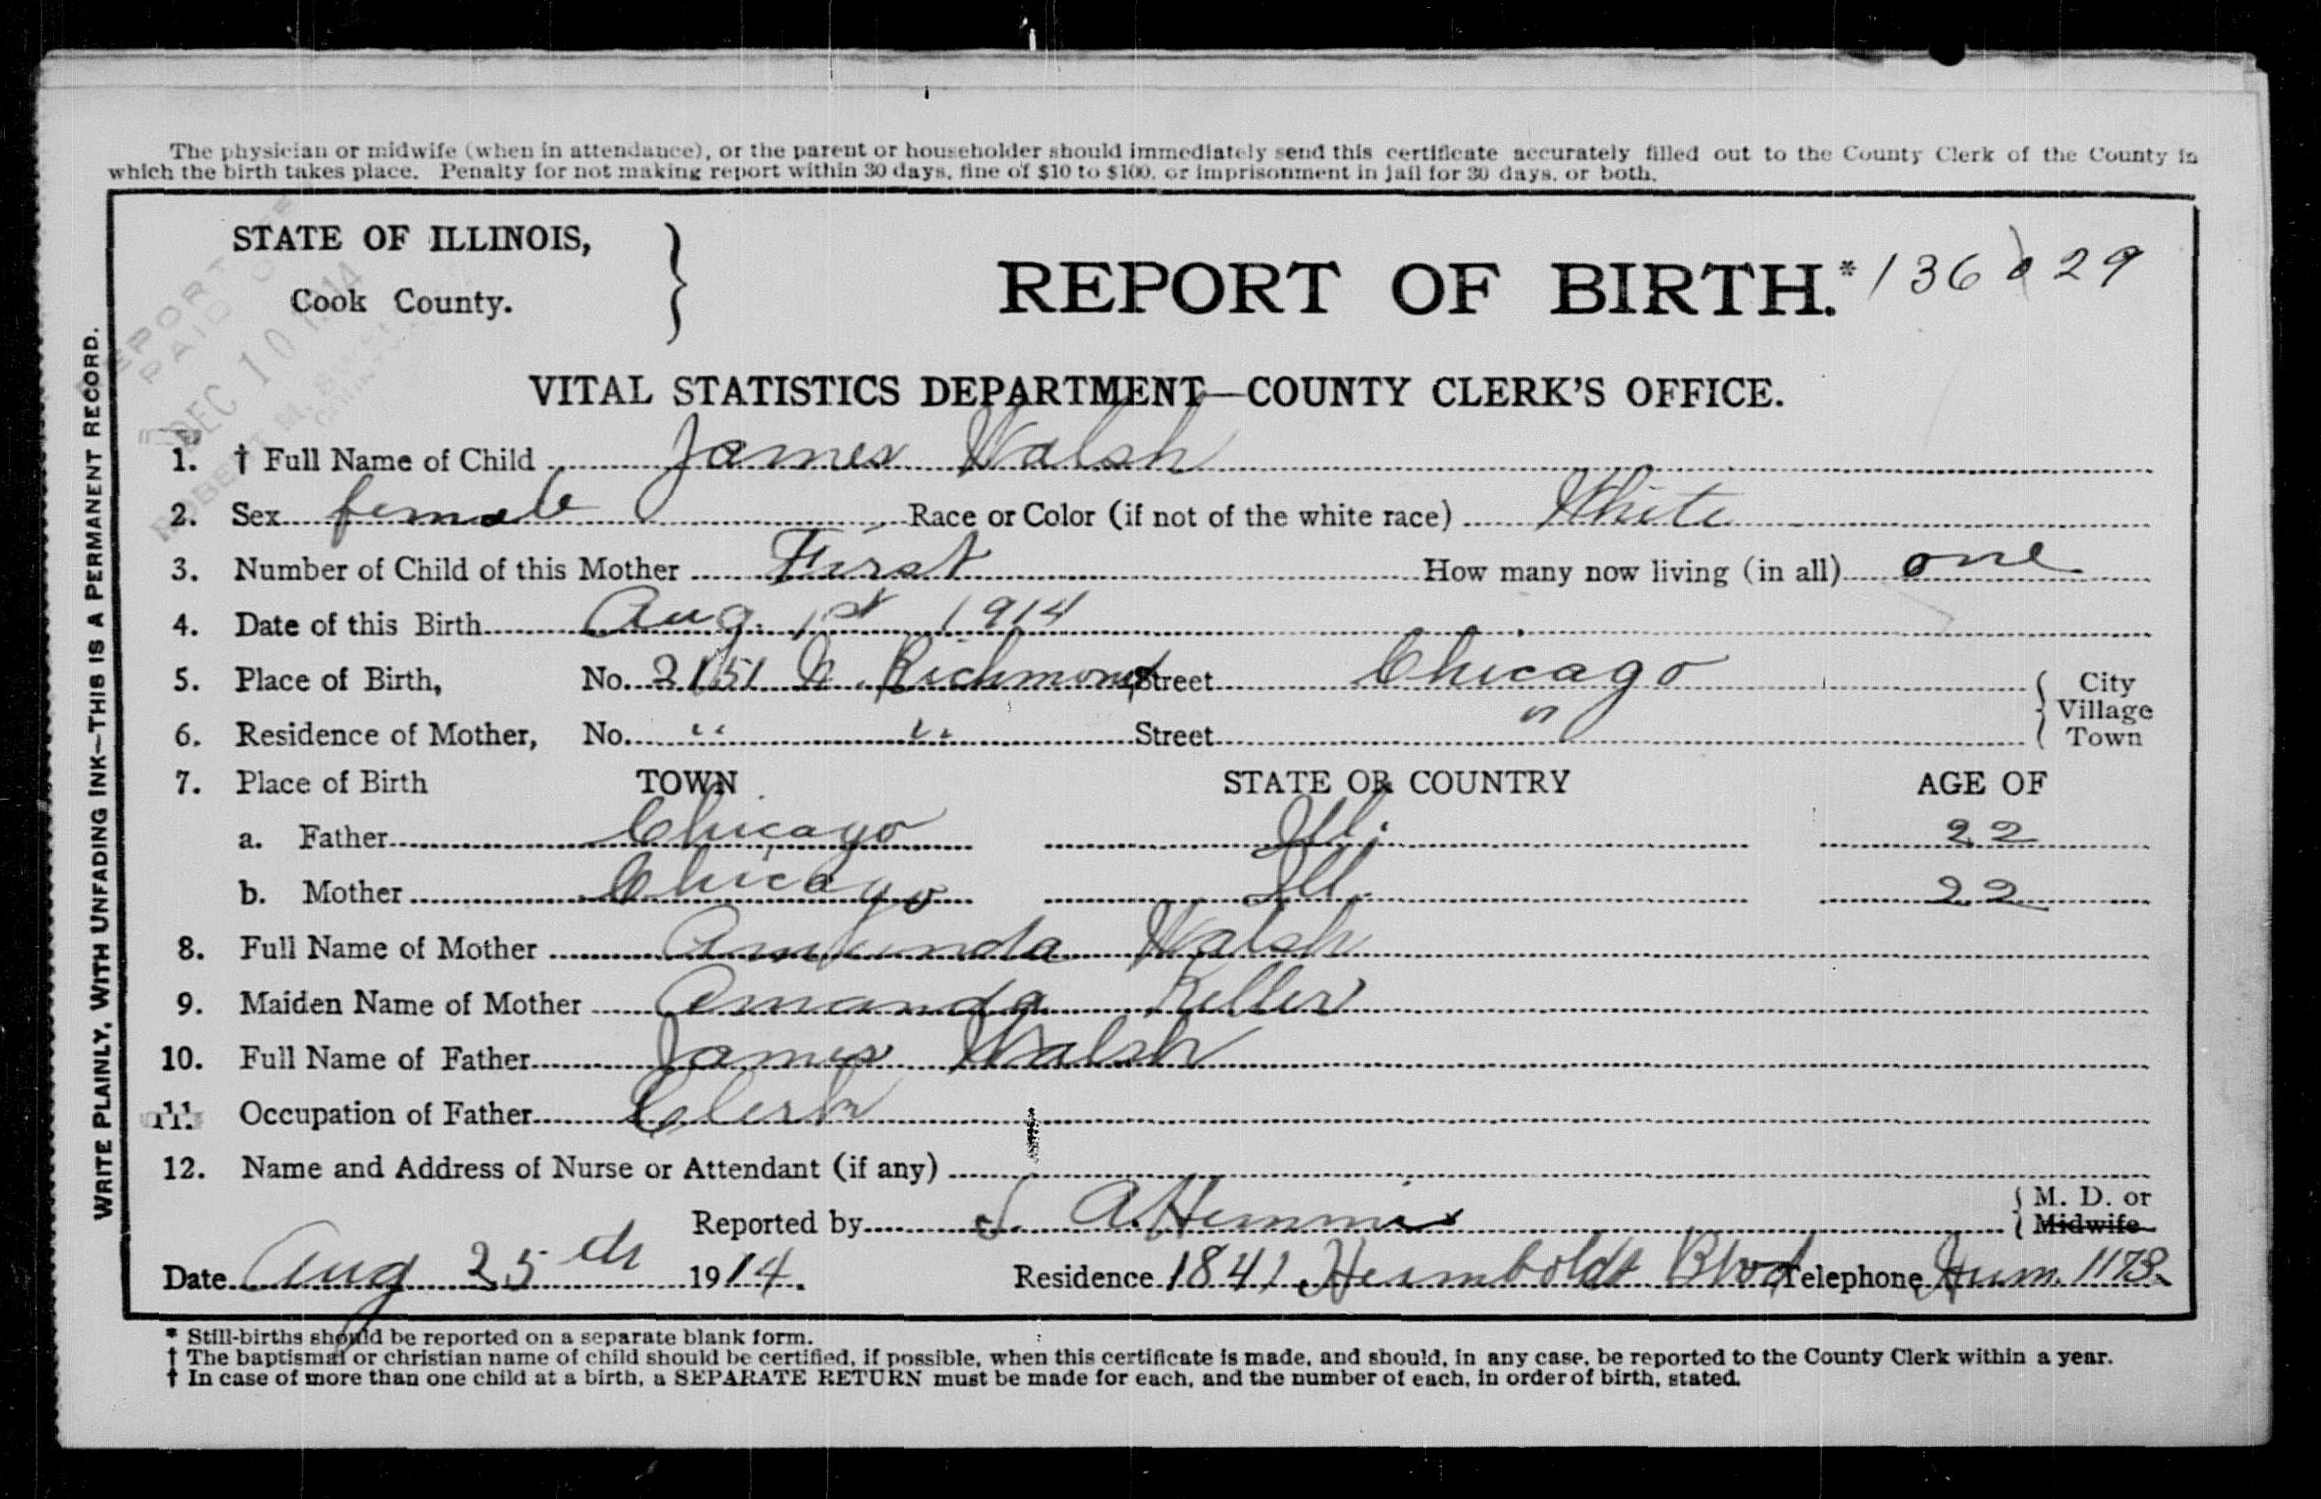 The physician or midwife (when in attendance), or the parent or householder should immediately send this certificate accurately filled out to the County Clerk of the County in
which the birth takes place. Penalty for not making report within 30 days, fine of $10 to $100, or imprisonment in jail for 30 days, or both.
STATE OF ILLINOIS,
Cook County.
REPORT OF BIRTH.* 136029
DEC 10 1914
VITAL STATISTICS DEPARTMENT—COUNTY CLERK'S OFFICE.
WRITE PLAINLY, WITH UNFADING INK—THIS IS A PERMANENT RECORD.
1. † Full Name of Child James Walsh
2. Sex female Race or Color (if not of the white race) White
3. Number of Child of this Mother First How many now living (in all) one
4. Date of this Birth Aug. 1st 1914
5. Place of Birth, No. 2151 N. Richmond Street Chicago { City
6. Residence of Mother, No. " " Street " Village Town
7. Place of Birth TOWN STATE OR COUNTRY AGE OF
a. Father Chicago Ill. 22
b. Mother Chicago Ill. 22
8. Full Name of Mother Amanda Walsh
9. Maiden Name of Mother Amanda Keller
10. Full Name of Father James Walsh
11. Occupation of Father Clerk
12. Name and Address of Nurse or Attendant (if any)
Reported by A. Hemmis { M. D. or Midwife
Date Aug 25th 1914. Residence 1841 Humboldt Blvd Telephone Hum. 1173.
* Still-births should be reported on a separate blank form.
† The baptismal or christian name of child should be certified, if possible, when this certificate is made, and should, in any case, be reported to the County Clerk within a year.
† In case of more than one child at a birth, a SEPARATE RETURN must be made for each, and the number of each, in order of birth, stated.